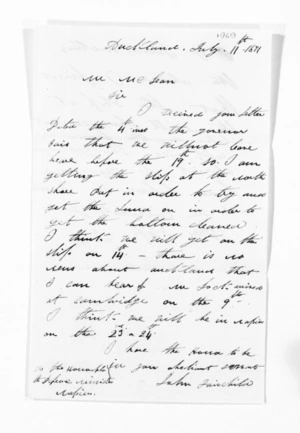 Auckland. July. 11th 1871
Mr McLean
Sir
I recived your letter
Dated the 4th inst the governor
sais that we will not leve
here before the 19th. so. I am
getting the slip at the north
shore put in order to try and
get the Luna on in order to
get the bottom cleaned
I think we will get on the
slip on 14th - thare is no
news about auckland that
I can hear of Mr
at cambridge on the 9th
I think we will be in Napier
on the 23d or 24th
I have the Honor to be
Sir your obedient servant
John Fairchild
To the Honorable
the Defence Minister
Napier.